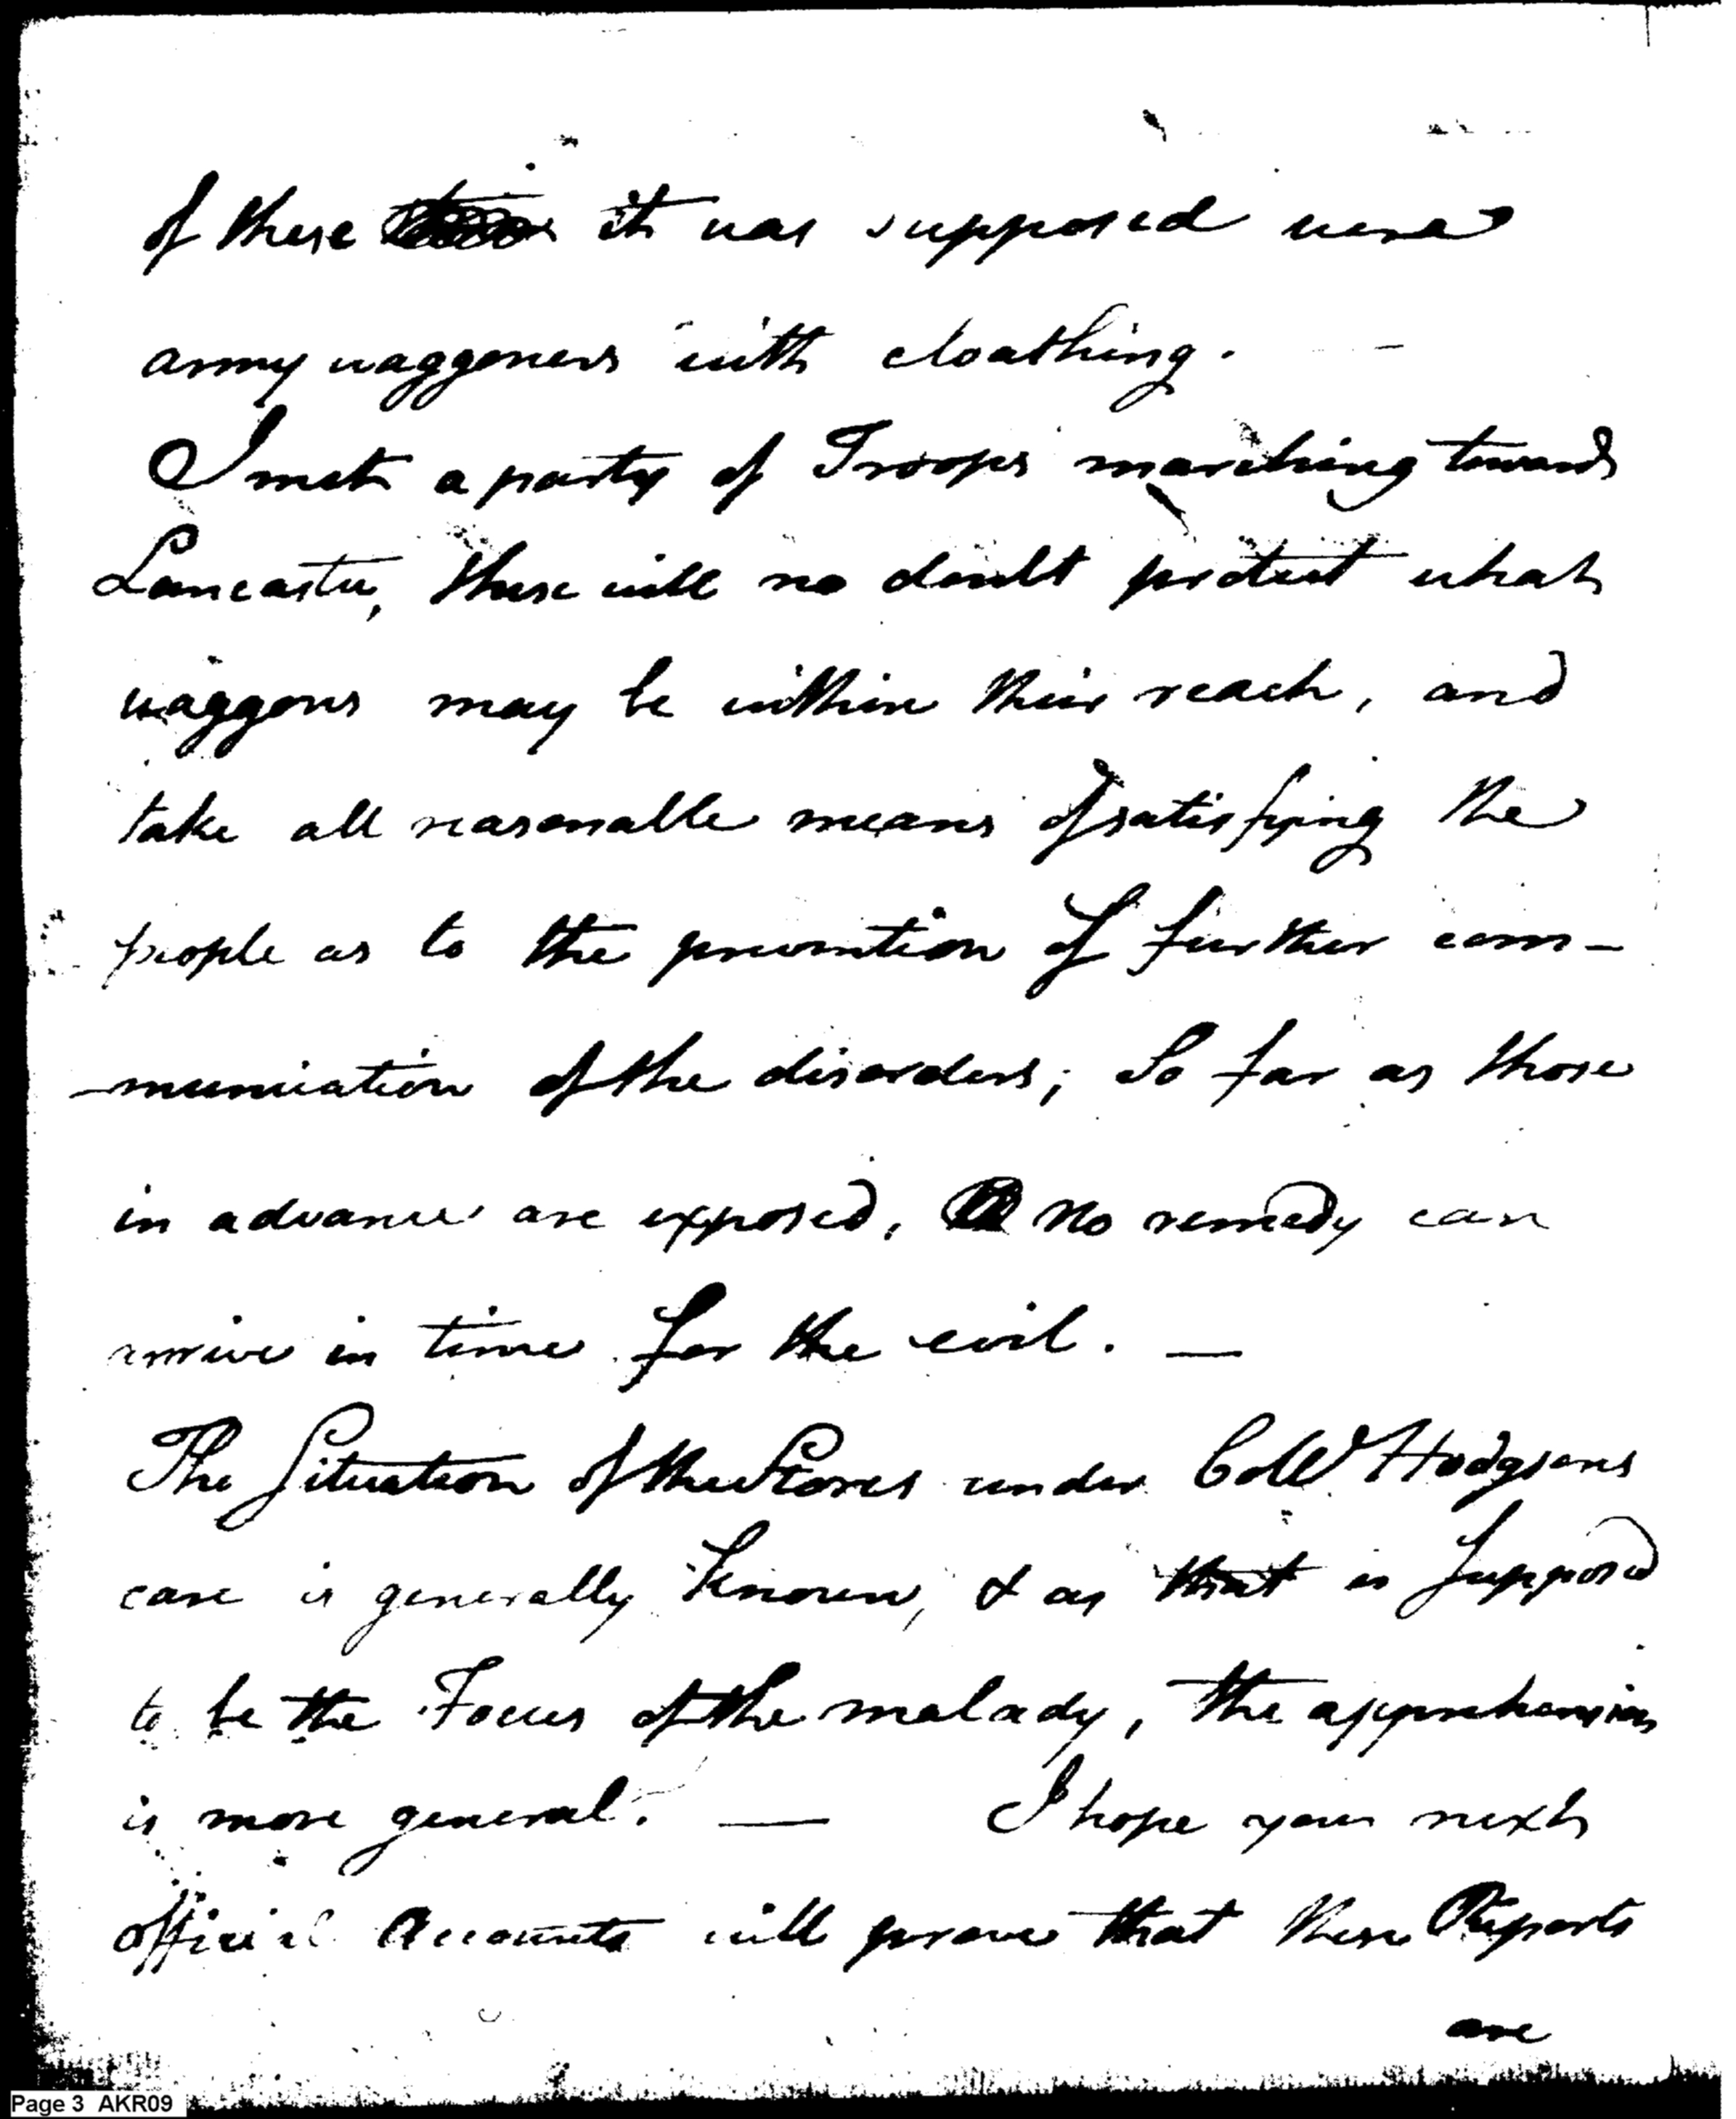 of these it was supposed were
army waggoners with cloathing.
I met a party of Troops marching towards
Lancaster, these will no doubt protect what
waggons may be within their reach, and
take all reasonable means of satisfying the
people as to the prevention of further com-
-munication of the disorders; So far as those
in advance are exposed, no remedy can
arrive in time for the evil. —
The Situation of the Stores under Coll Hodgsons
care is generally Known, & as that is Supposed
to be the Focus of the malady, the apprehension
is more general. — I hope your next
official Accounts will prove that these Reports
are
Page 3 AKR09